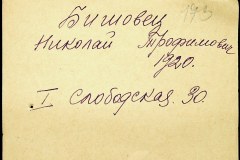 Бишовец
Николай Трофимович
1920.
I Слободская 30.